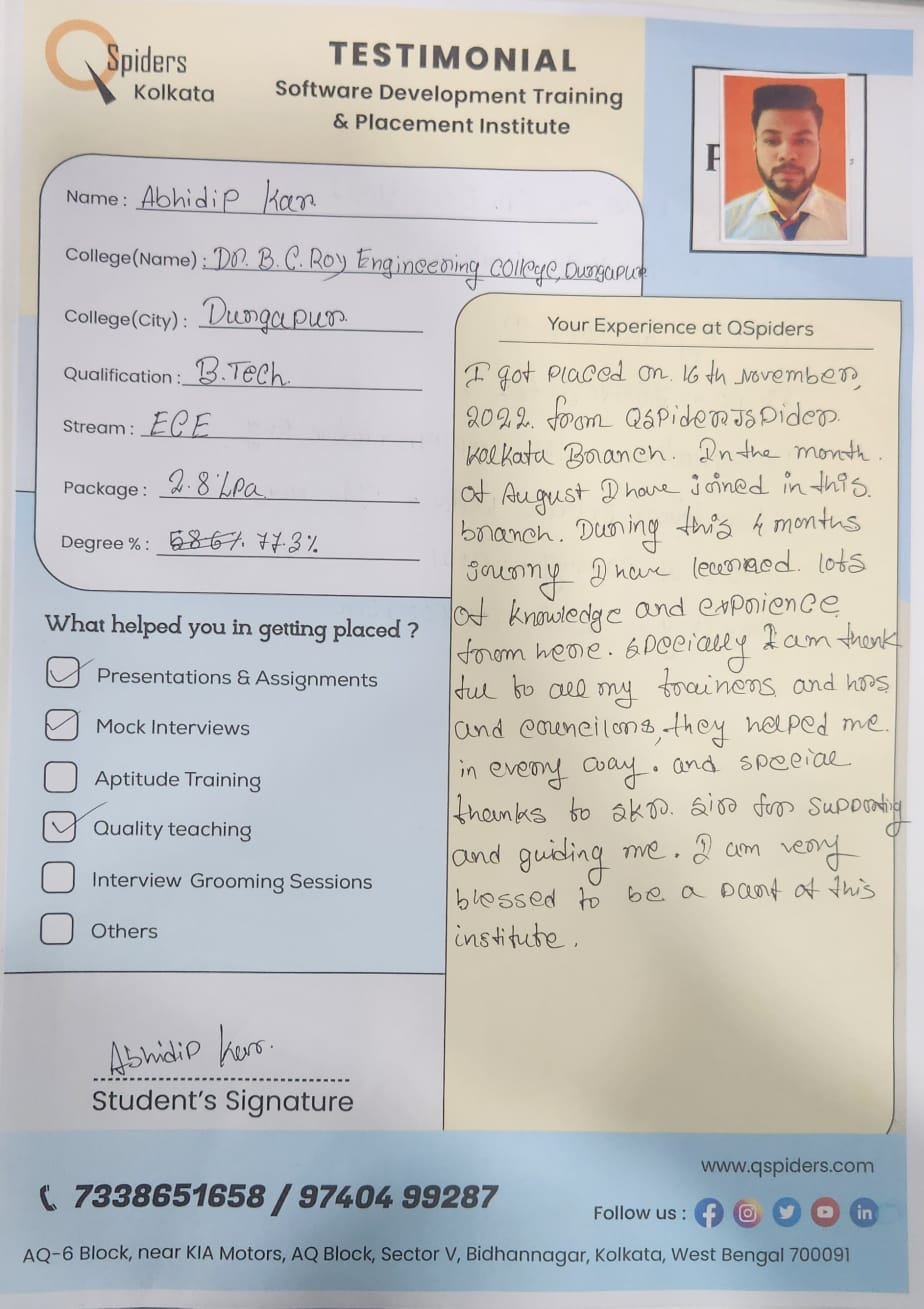 QSpiders
Kolkata
TESTIMONIAL
Software Development Training
& Placement Institute
P
Name : Abhidip Kar
College(Name) : DR. B. C. Roy Engineering College, Durgapur
College(City) : Durgapur
Qualification : B.Tech.
Stream : ECE
Package : 2.8 Lpa
Degree % : 77.3%
What helped you in getting placed ?
Presentations & Assignments
Mock Interviews
Aptitude Training
Quality teaching
Interview Grooming Sessions
Others
Abhidip Kar.
Student's Signature
Your Experience at QSpiders
I got placed on 16th November,
2022. from QSpider JSpider.
Kolkata Branch. In the month.
of August I have joined in this.
branch. During this 4 months
journy I have learned. lots
of knowledge and exprience
from here. specially I am thank
ful to all my trainers and hrs
and councilors, they helped me.
in every way. and special
thanks to sir for supporting
and guiding me. I am very
blessed to be a part of this
institute.
www.qspiders.com
7338651658 / 97404 99287
Follow us :
AQ-6 Block, near KIA Motors, AQ Block, Sector V, Bidhannagar, Kolkata, West Bengal 700091